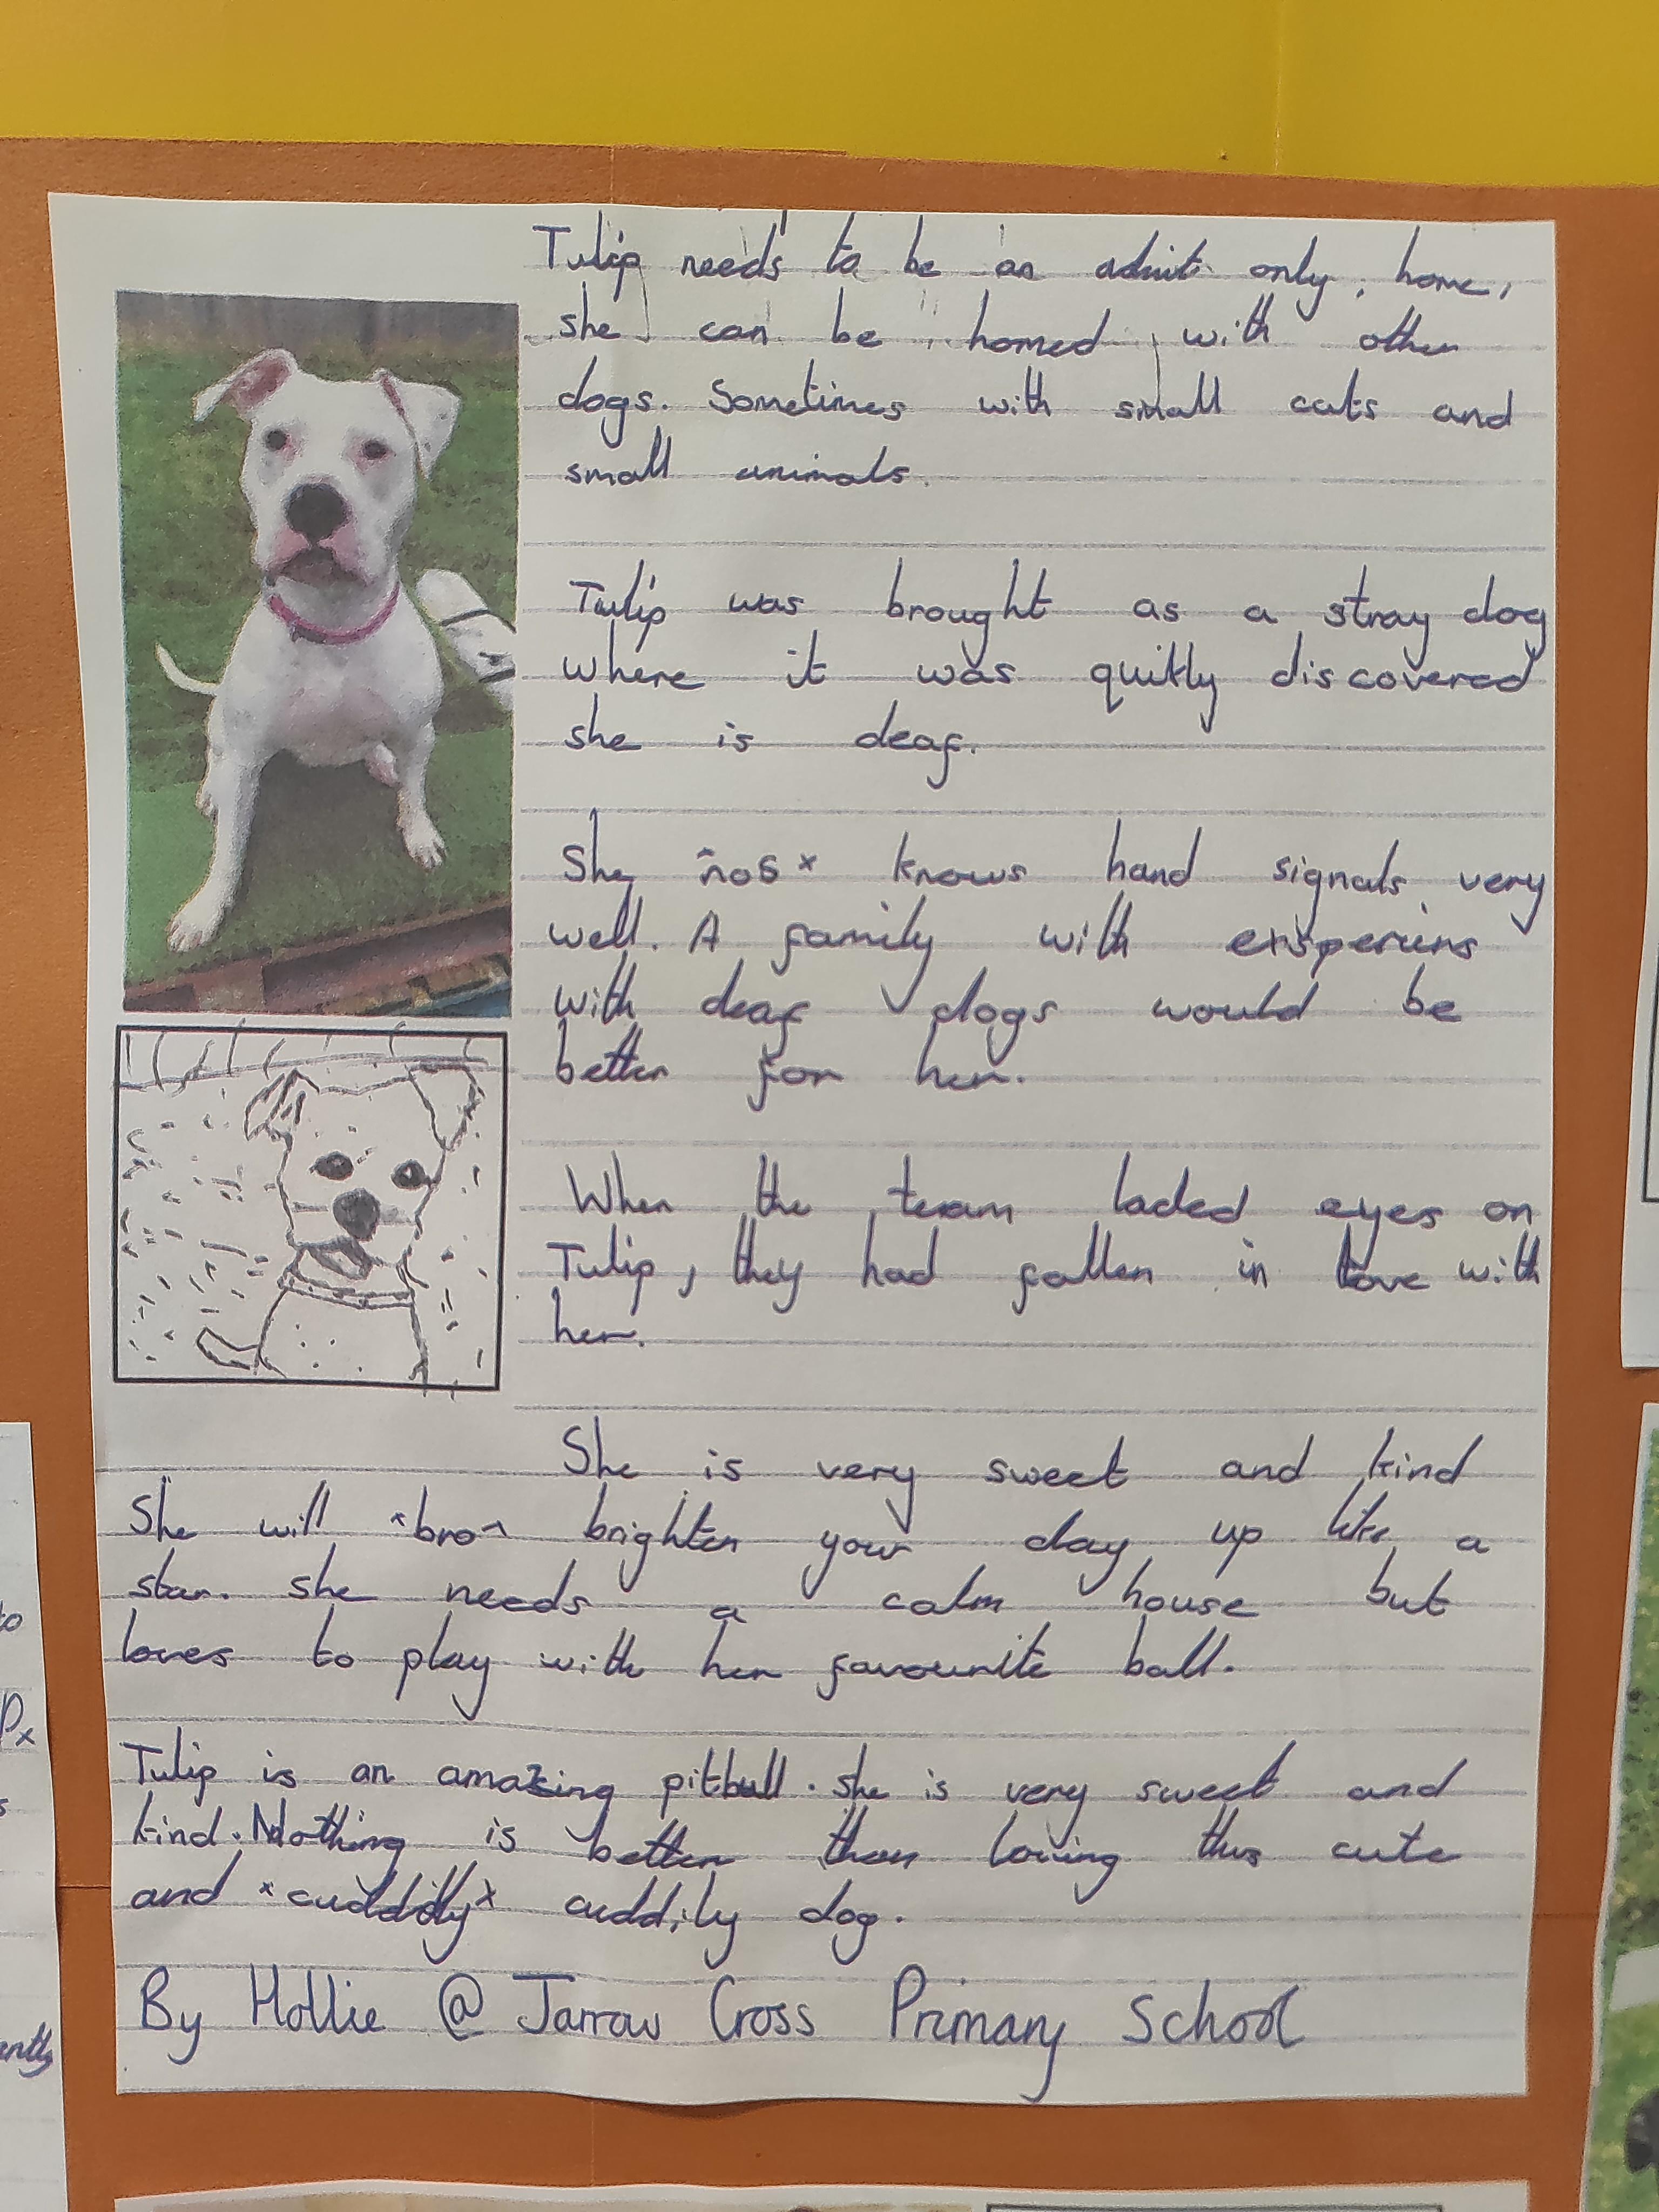 Tulip needs to be an aduit only, home,
she can be homed with other
dogs. Sometimes with small cats and
small animals.
Tulip was brought as a stray dog
where it was quitly discovered
she is deaf.
She nos knows hand signals very
well. A family with exsperiens
with deaf dogs would be
better for her.
When the team laded eyes on
Tulip, they had fallen in love with
her.
She is very sweet and kind
She will bro brighten your day up like a
star. she needs a calm house but
loves to play with her favourite ball.
Tulip is an amazing pitbull. she is very sweet and
kind. Nothing is better than loving this cute
and cuddily cuddily dog.
By Hollie @ Jarrow Cross Primary School